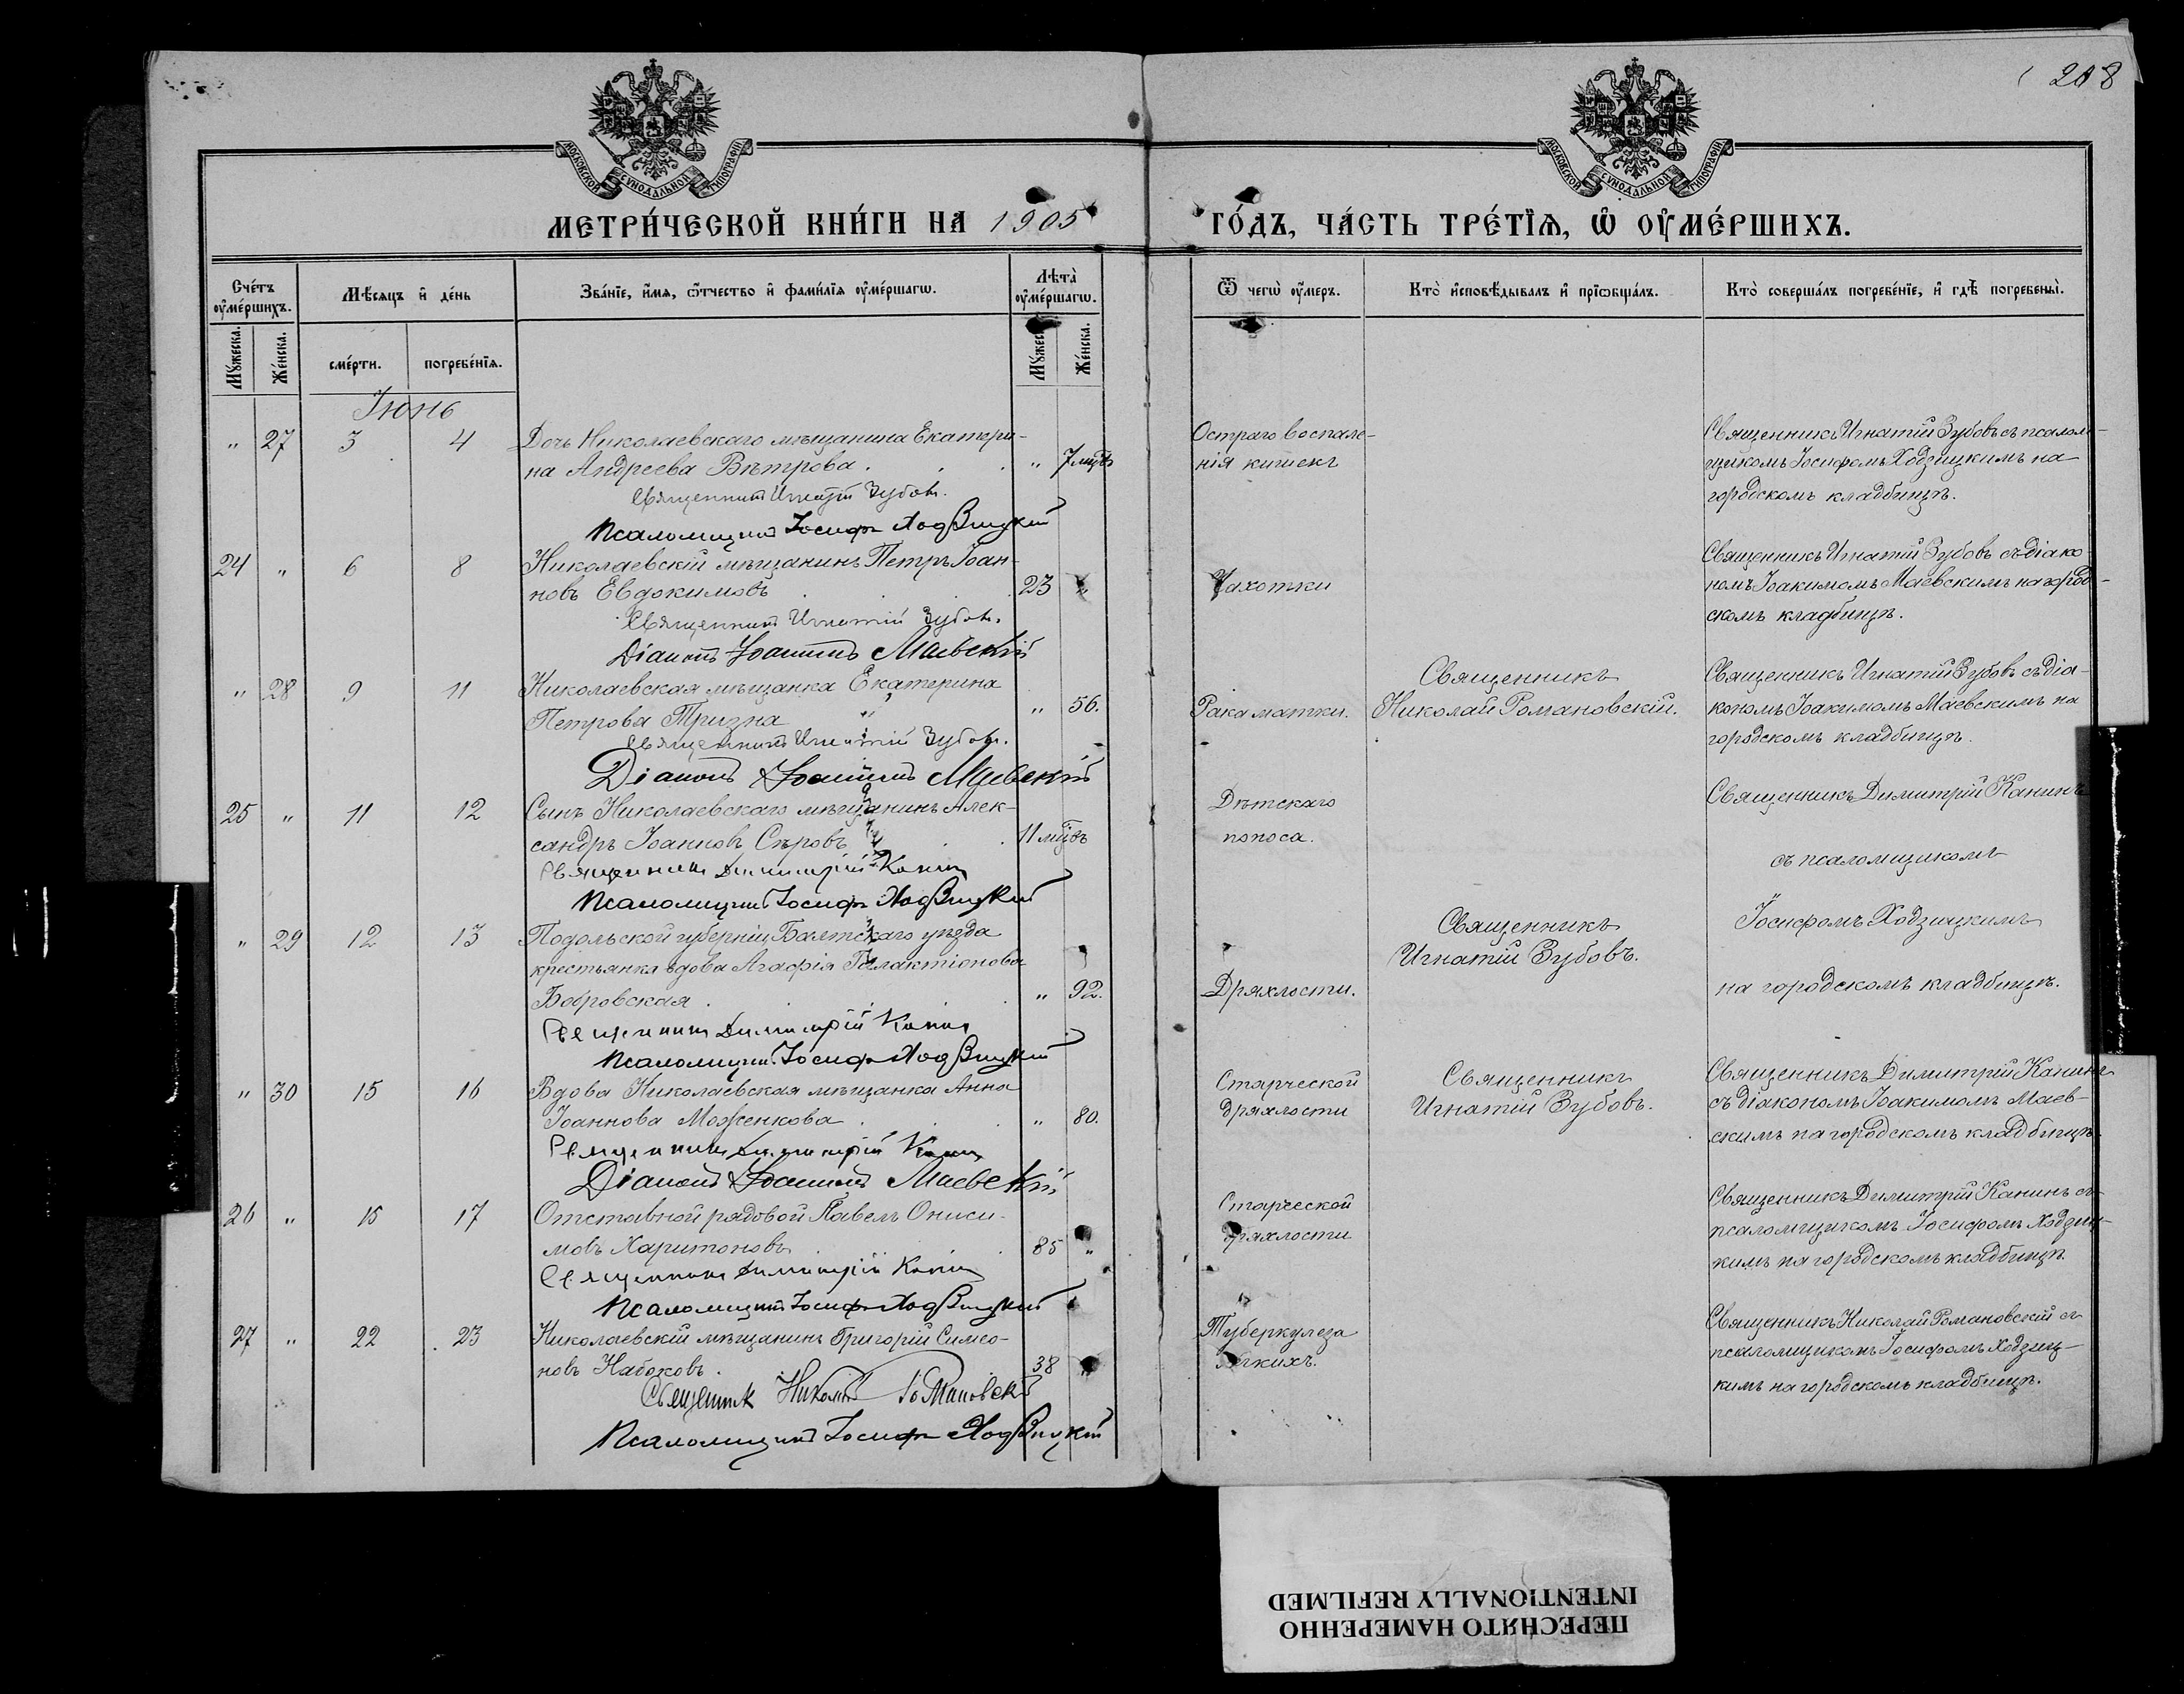 208
МОСКОВСКОЙ СѴНОДАЛЬНОЙ ТИПОГРАФІИ
МОСКОВСКОЙ СѴНОДАЛЬНОЙ ТИПОГРАФІИ
МЕТРИ́ЧЕСКОЙ КНИ́ГИ НА 1905 ГО́ДЪ, ЧА́СТЬ ТРЕ́ТЇѦ, Ѡ҆ ОУ҆МЕ́РШИХЪ.
Сче́тъ оу҆ме́ршихъ.
Мѣ́сяцъ и҆ де́нь
Зва́нїе, и҆́мѧ, ѻ҆́тчество и҆ фами́лїѧ оу҆ме́ршагѡ.
Лѣта̀ оу҆ме́ршагѡ.
Ѿ чегѡ̀ оу҆́меръ.
Кто̀ и҆сповѣ́дывалъ и҆ прїѡбща́лъ.
Кто̀ соверша́лъ погребе́нїе, и҆ гдѣ̀ погребены̀.
Му́жеска.
Же́нска.
сме́рти.
погребе́нїѧ.
Му́жес
Же́нска.
Іюнь
" 27 3 4 Дочь Николаевскаго мѣщанина Екатери-
на Андреева Вѣтрова . . . " 7 мцвъ
Священникъ Игнатій Зубовъ.
Псаломщикъ Іосифъ Ходзицкій
Остраго воспале-
нія кишекъ
Священникъ Игнатій Зубовъ съ псалом-
щикомъ Іосифомъ Ходзицкимъ на
городскомъ кладбищѣ.
24 " 6 8 Николаевскій мѣщанинъ Петръ Іоан-
новъ Евдокимовъ . . . 23 "
Священникъ Игнатій Зубовъ.
Діаконъ Іоакимъ Маевскій
Чахотки
Священникъ Игнатій Зубовъ съ діако-
номъ Іоакимомъ Маевскимъ на город-
скомъ кладбищѣ.
" 28 9 11 Николаевская мѣщанка Екатерина
Петрова Тризна " 56.
Священникъ Игнатій Зубовъ.
Діаконъ Іоакимъ Маевскій
Рака матки.
Священникъ
Николай Романовскій.
Священникъ Игнатій Зубовъ съ діа-
кономъ Іоакимомъ Маевскимъ на
городскомъ кладбищѣ.
25 " 11 12 Сынъ Николаевскаго мѣщанинъ Алек-
сандръ Іоанновъ Сѣровъ . . 11 мцвъ
Священникъ Димитрій Канинъ
Псаломщикъ Іосифъ Ходзицкій
Дѣтскаго
поноса.
Священникъ Димитрій Канинъ
съ псаломщикомъ
Іосифомъ Ходзицкимъ
на городскомъ кладбищѣ.
" 29 12 13 Подольской губерніи, Балтскаго уѣзда
крестьянка вдова Агафія Галактіонова
Бобровская . . . " 92.
Священникъ Димитрій Канинъ
Псаломщикъ Іосифъ Ходзицкій
Дряхлости.
Священникъ
Игнатій Зубовъ.
" 30 15 16 Вдова Николаевская мѣщанка Анна
Іоаннова Моженкова . . " 80.
Священникъ Димитрій Канинъ
Діаконъ Іоакимъ Маевскій
Старческой
дряхлости
Священникъ
Игнатій Зубовъ.
Священникъ Димитрій Канинъ
съ діакономъ Іоакимомъ Маев-
скимъ на городскомъ кладбищѣ.
26 " 15 17 Отставной рядовой Павелъ Ониси-
мовъ Харитоновъ . . . 85 "
Священникъ Димитрій Канинъ
Псаломщикъ Іосифъ Ходзицкій
Старческой
дряхлости
Священникъ Димитрій Канинъ съ
псаломщикомъ Іосифомъ Ходзиц-
кимъ на городскомъ кладбищѣ.
27 " 22 23 Николаевскій мѣщанинъ Григорій Симео-
новъ Набоковъ . 38 "
Священник Николай Романовскій
Псаломщикъ Іосифъ Ходзицкій
Туберкулеза
легкихъ.
Священникъ Николай Романовскій съ
псаломщикомъ Іосифомъ Ходзиц-
кимъ на городскомъ кладбищѣ.
ПЕРЕСНЯТО НАМЕРЕННО
INTENTIONALLY REFILMED